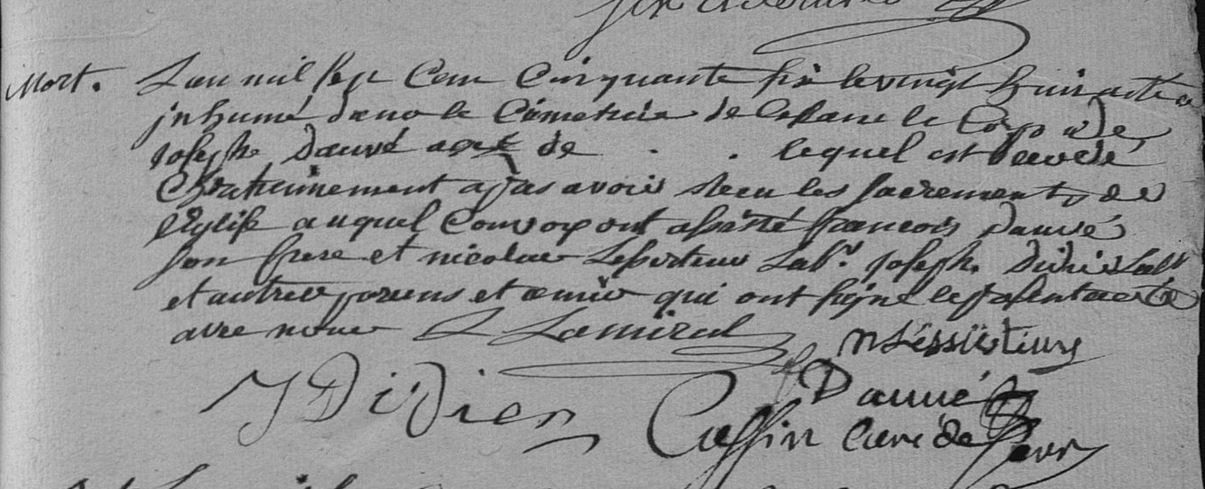 Mort. L'an mil sep Cent Cinquante six le vingt huit acte a
inhumé dans le Cimetiere de le Corp de
Joseph Dauvé agé de . . lequel est decedé
Chrétiennement apres avoir receu les sacrements de
l'Eglise auquel Convoy ont assisté francois Dauvé
son frere et nicolas Lab.r joseph Didier Lab.r
et autres parens et amis qui ont signé le present acte
avec nous L Lamiral
J Didier
Dauvé
Cassin Curé de